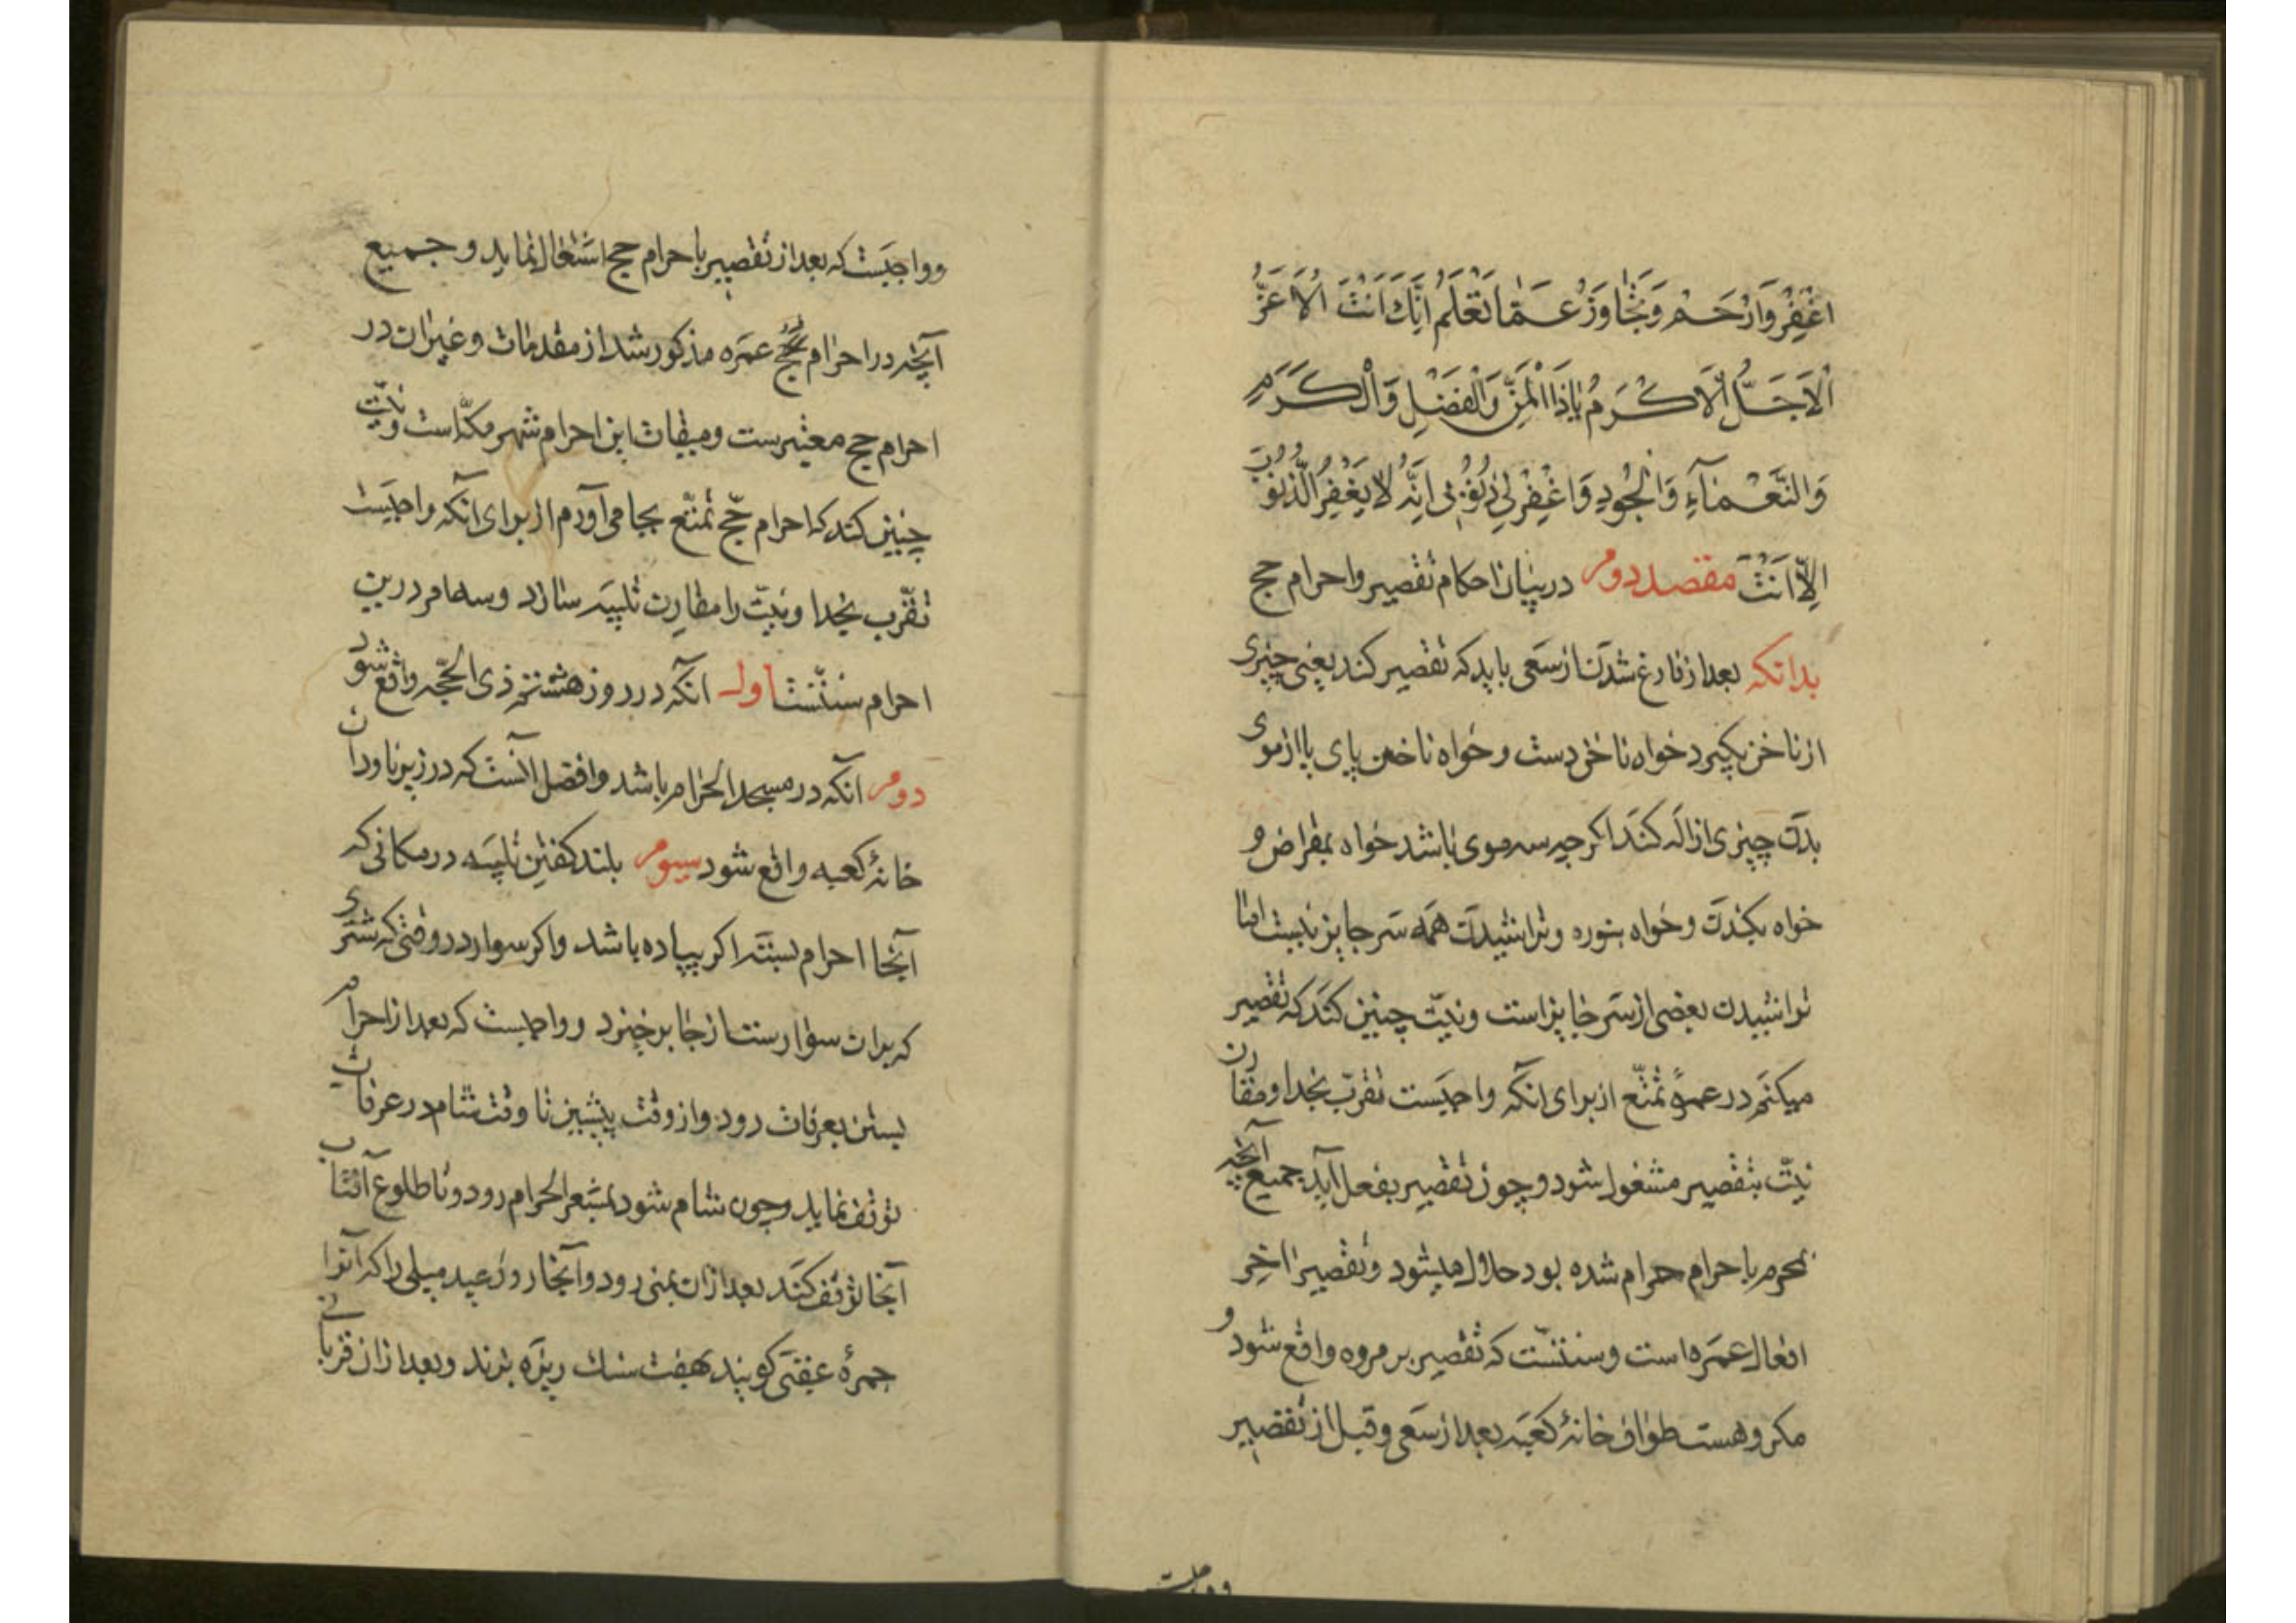 اغْفِرْ وَارْحَمْ وَتَجَاوَزْ عَمَّا تَعْلَمُ اِنَّكَ اَنْتَ الْاَعَزُّ
الْاَجَلُّ الْاَكْرَمُ يَا ذَا الْمَنِّ وَالْفَضْلِ وَالْكَرَمِ
وَالنَّعْمَآءِ وَالْجُودِ وَاغْفِرْ لِي ذُنُوبِي اِنَّهُ لَا يَغْفِرُ الذُّنُوبَ
اِلَّا اَنْتَ مقصد دوم در بیان احکام تقصیر و احرام حج
بدانکه بعد از فارغ شدن از سعی باید که تقصیر کند یعنی چیزی
از ناخن بکیرد خواه ناخن دست و خواه ناخن پای یا از موی
بدن چیزی ازاله کند اکرچه سه موی باشد خواه بمقراض و
خواه بکندن و خواه بنوره و تراشیدن همه سر جایز نیست اما
تراشیدن بعضی از سر جایز است و نیّت چنین کند که تقصیر
میکنم در عمرهٔ تمتّع از برای آنکه واجبست تقرّب بخدا و مقارن
نیّت بتقصیر مشغول شود و چون تقصیر بفعل آید جمیع آنچه
بمحرم باحرام حرام شده بود حلال میشود و تقصیر آخر
افعال عمره است و سنّتست که تقصیر بر مروه واقع شود و
مکروهست طواف خانهٔ کعبه بعد از سعی و قبل از تقصیر
و واجبست
و واجبست که بعد از تقصیر باحرام حج اشتغال نماید و جمیع
آنچه در احرام حج عمره مذکور شد از مقدمات و غیر آن در
احرام حج معتبرست و میقات این احرام شهر مکّه است و نیّت
چنین کند که احرام حجّ تمتّع بجا می آورم از برای آنکه واجبست
تقرّب بخدا و نیّت را مقارن تلبیه سازد و سه امر درین
احرام سنّتست اول آنکه در روز هشتم ذی الحجّه واقع شود
دوم آنکه در مسجد الحرام باشد و افضل آنست که در زیر ناودان
خانهٔ کعبه واقع شود سیوم بلند کفتن تلبیه در مکانی که
آنجا احرام بسته اکر پیاده باشد و اکر سوار در وقتی که شتری
که بران سوارست از جا برخیزد و واجبست که بعد از احرام
بستن بعرفات رود و از وقت پیشین تا وقت شام در عرفات
توقف نماید و چون شام شود بمشعر الحرام رود و تا طلوع آفتاب
آنجا توقف کند بعد ازان بمنی رود و آنجا روز عید میلی را که آنرا
جمرهٔ عقبی کویند هفت سنك ریزه بزند و بعد ازان قربانی